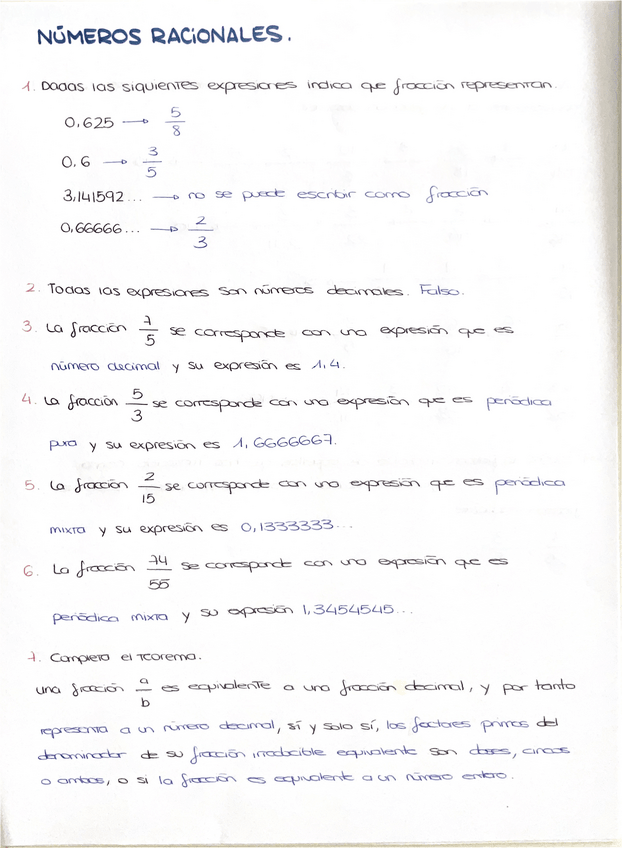 NÚMEROS RACIONALES.
1. Dadas las siguientes expresiones indica que fracción representan.
0,625 → 5/8
0,6 → 3/5
3,141592... → no se puede escribir como fracción
0,66666... → 2/3
2. Todas las expresiones son números decimales. Falso.
3. La fracción 7/5 se corresponde con una expresión que es
número decimal y su expresión es 1,4.
4. La fracción 5/3 se corresponde con una expresión que es periódica
pura y su expresión es 1,6666667.
5. La fracción 2/15 se corresponde con una expresión que es periódica
mixta y su expresión es 0,1333333...
6. La fracción 74/55 se corresponde con una expresión que es
periódica mixta y su expresión 1,3454545...
7. Completa el teorema.
una fracción a/b es equivalente a una fracción decimal, y por tanto
representa a un número decimal, sí y solo sí, los factores primos del
denominador de su fracción irreducible equivalente son doses, cincos
o ambos, o si la fracción es equivalente a un número entero.